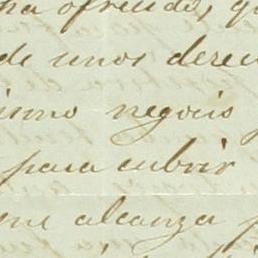 ha ofrecido, qu
de unos derec
ismo negocio
para cubrir
ene alcanza p